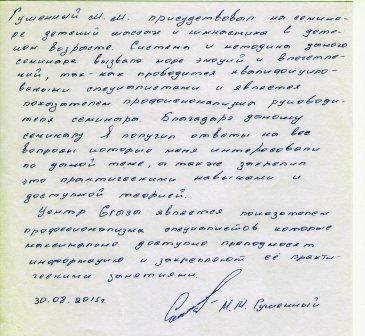 Гуменный М.М. присудствовал на семина-
ре детский массаж и гимнастика в детс-
ком возрасте. Система и методика даного
семинара вызвало море эмоций и впечетле-
ний, так-как проводится квалифициро-
ваными специалистами и является
показателем професионализма руководи-
теля семинара. Благодаря даному
семинару я получил ответы на все
вопросы которые меня интересовали
по даной теме, а также закрепил
это практическими навыками и
доступной теорией.
Центр является показателем
професионализма специалистов которые
максимально доступно преподносят
информацию и закрепляют её практи-
ческими занятиями.
30.08.2015г. М.М. Гуменный